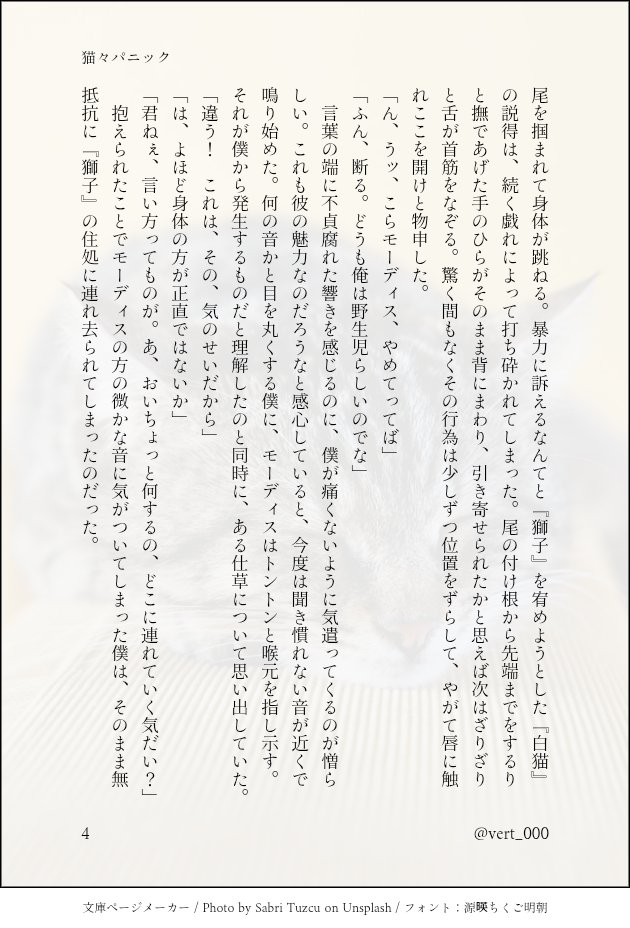 猫々パニック
尾を掴まれて身体が跳ねる。暴力に訴えるなんてと『獅子』を宥めようとした『白猫』
の説得は、続く戯れによって打ち砕かれてしまった。尾の付け根から先端までをするり
と撫であげた手のひらがそのまま背にまわり、引き寄せられたかと思えば次はざりざり
と舌が首筋をなぞる。驚く間もなくその行為は少しずつ位置をずらして、やがて唇に触
れここを開けと物申した。
「ん、うッ、こらモーディス、やめてってば」
「ふん、断る。どうも俺は野生児らしいのでな」
　言葉の端に不貞腐れた響きを感じるのに、僕が痛くないように気遣ってくるのが憎ら
しい。これも彼の魅力なのだろうなと感心していると、今度は聞き慣れない音が近くで
鳴り始めた。何の音かと目を丸くする僕に、モーディスはトントンと喉元を指し示す。
それが僕から発生するものだと理解したのと同時に、ある仕草について思い出していた。
「違う！　これは、その、気のせいだから」
「は、よほど身体の方が正直ではないか」
「君ねぇ、言い方ってものが。あ、おいちょっと何するの、どこに連れていく気だい？」
　抱えられたことでモーディスの方の微かな音に気がついてしまった僕は、そのまま無
抵抗に『獅子』の住処に連れ去られてしまったのだった。
4
@vert_000
文庫ページメーカー / Photo by Sabri Tuzcu on Unsplash / フォント：源暎ちくご明朝